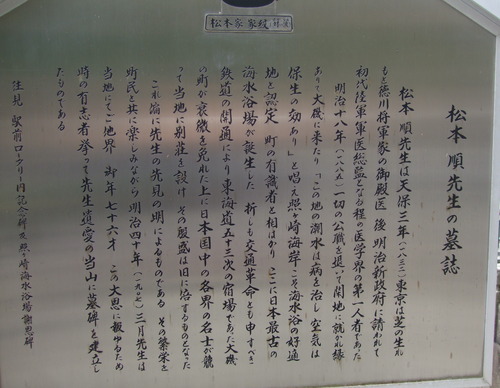 松本家家紋
松本順先生の墓誌
松本 順先生は天保三年(一八三二)東京は芝の生れ
もと徳川将軍家の御殿医 後 明治新政府に請われて
初代陸軍軍医総監となる程の医学界の第一人者であった
明治十八年(一八八五)一切の公職を退いて閑地に就かれ縁
ありて大磯に来たり「この地の潮水は病を治し 空気は
保生の効あり」と唱え照ヶ崎海岸こそ海水浴の好適
地と認定 町の有識者と相はかり ここに日本最古の
海水浴場が誕生した 折しも交通革命とも申すべき
鉄道の開通により東海道五十三次の宿場であった大磯
の町が衰微を免れた上に日本国中の各界の名士が競
って当地に別荘を設け その殷盛は旧に倍するものとなった
これ偏に先生の先見の明によるものである その繁栄を
町民と共に楽しみながら明治四十年(一九〇七)三月先生は
当地にてご他界 御年七十六才 この大恩に報ゆるため
時の有志者挙って先生遺愛の当山に墓碑を建立し
たものである
注見 駅前ロータリー内記念碑及照ヶ崎海水浴場謝恩碑